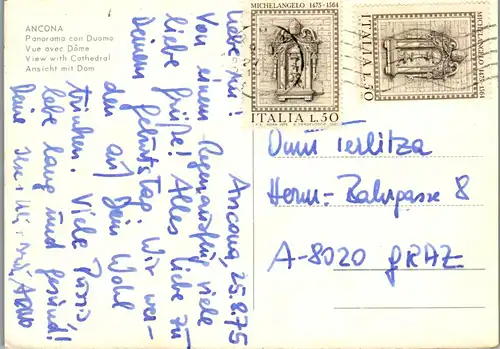 ANCONA
Panorama con Duomo
Vue avec Dôme
View with Cathedral
Ansicht mit Dom
MICHELANGELO 1475-1564
ITALIA L.50
MICHELANGELO 1475-1564
ITALIA L.50
Ancona, 25.8.75
Liebe
Von einem Regenausflug viele
liebe Grüße! Alles Liebe zu
Deinem Geburtstag. Wir wer-
den auf Dein Wohl
trinken. Viele Bussis
lebe lang und gesund!
Deine
Terlitza
Herm-Bahrgasse 8
A-8020 GRAZ